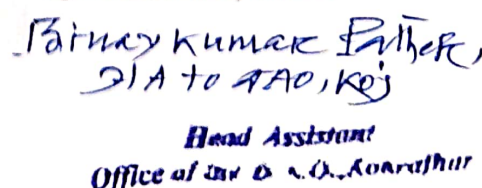 Binay Kumar Pathak,
HA to DAO, Koj
Head Assistant
Office of the D.A.O., Kokrajhar